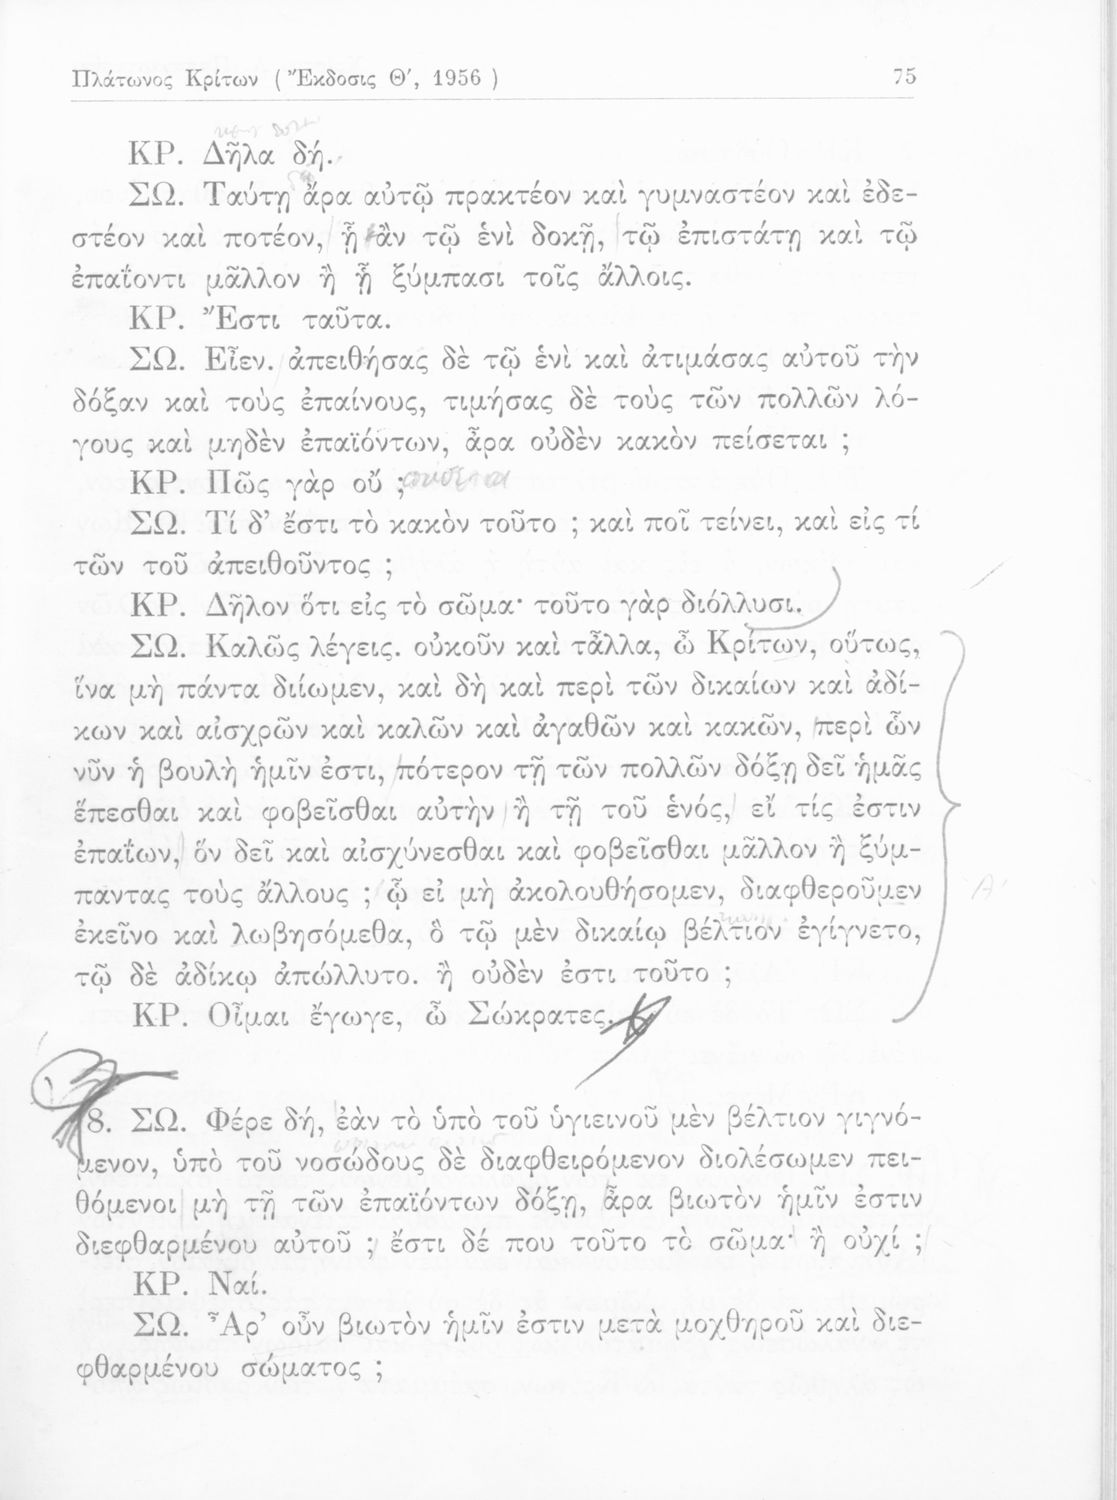 Πλάτωνος Κρίτων ( Ἔκδοσις Θ′, 1956 ) 75
ΚΡ. Δῆλα δή.
ΣΩ. Ταύτῃ ἄρα αὐτῷ πρακτέον καὶ γυμναστέον καὶ ἐδε-
στέον καὶ ποτέον, ᾗ ἂν τῷ ἑνὶ δοκῇ, τῷ ἐπιστάτῃ καὶ τῷ
ἐπαΐοντι μᾶλλον ἢ ᾗ ξύμπασι τοῖς ἄλλοις.
ΚΡ. Ἔστι ταῦτα.
ΣΩ. Εἶεν. ἀπειθήσας δὲ τῷ ἑνὶ καὶ ἀτιμάσας αὐτοῦ τὴν
δόξαν καὶ τοὺς ἐπαίνους, τιμήσας δὲ τοὺς τῶν πολλῶν λό-
γους καὶ μηδὲν ἐπαϊόντων, ἆρα οὐδὲν κακὸν πείσεται ;
ΚΡ. Πῶς γὰρ οὔ ;
ΣΩ. Τί δ’ ἔστι τὸ κακὸν τοῦτο ; καὶ ποῖ τείνει, καὶ εἰς τί
τῶν τοῦ ἀπειθοῦντος ;
ΚΡ. Δῆλον ὅτι εἰς τὸ σῶμα· τοῦτο γὰρ διόλλυσι.
ΣΩ. Καλῶς λέγεις. οὐκοῦν καὶ τἆλλα, ὦ Κρίτων, οὕτως,
ἵνα μὴ πάντα διίωμεν, καὶ δὴ καὶ περὶ τῶν δικαίων καὶ ἀδί-
κων καὶ αἰσχρῶν καὶ καλῶν καὶ ἀγαθῶν καὶ κακῶν, περὶ ὧν
νῦν ἡ βουλὴ ἡμῖν ἐστι, πότερον τῇ τῶν πολλῶν δόξῃ δεῖ ἡμᾶς
ἕπεσθαι καὶ φοβεῖσθαι αὐτὴν ἢ τῇ τοῦ ἑνός, εἴ τίς ἐστιν
ἐπαΐων, ὃν δεῖ καὶ αἰσχύνεσθαι καὶ φοβεῖσθαι μᾶλλον ἢ ξύμ-
παντας τοὺς ἄλλους ; ᾧ εἰ μὴ ἀκολουθήσομεν, διαφθεροῦμεν
ἐκεῖνο καὶ λωβησόμεθα, ὃ τῷ μὲν δικαίῳ βέλτιον ἐγίγνετο,
τῷ δὲ ἀδίκῳ ἀπώλλυτο. ἢ οὐδέν ἐστι τοῦτο ;
ΚΡ. Οἶμαι ἔγωγε, ὦ Σώκρατες.
8. ΣΩ. Φέρε δή, ἐὰν τὸ ὑπὸ τοῦ ὑγιεινοῦ μὲν βέλτιον γιγνό-
μενον, ὑπὸ τοῦ νοσώδους δὲ διαφθειρόμενον διολέσωμεν πει-
θόμενοι μὴ τῇ τῶν ἐπαϊόντων δόξῃ, ἆρα βιωτὸν ἡμῖν ἐστιν
διεφθαρμένου αὐτοῦ ; ἔστι δέ που τοῦτο τὸ σῶμα· ἢ οὐχί ;
ΚΡ. Ναί.
ΣΩ. Ἆρ’ οὖν βιωτὸν ἡμῖν ἐστιν μετὰ μοχθηροῦ καὶ διε-
φθαρμένου σώματος ;